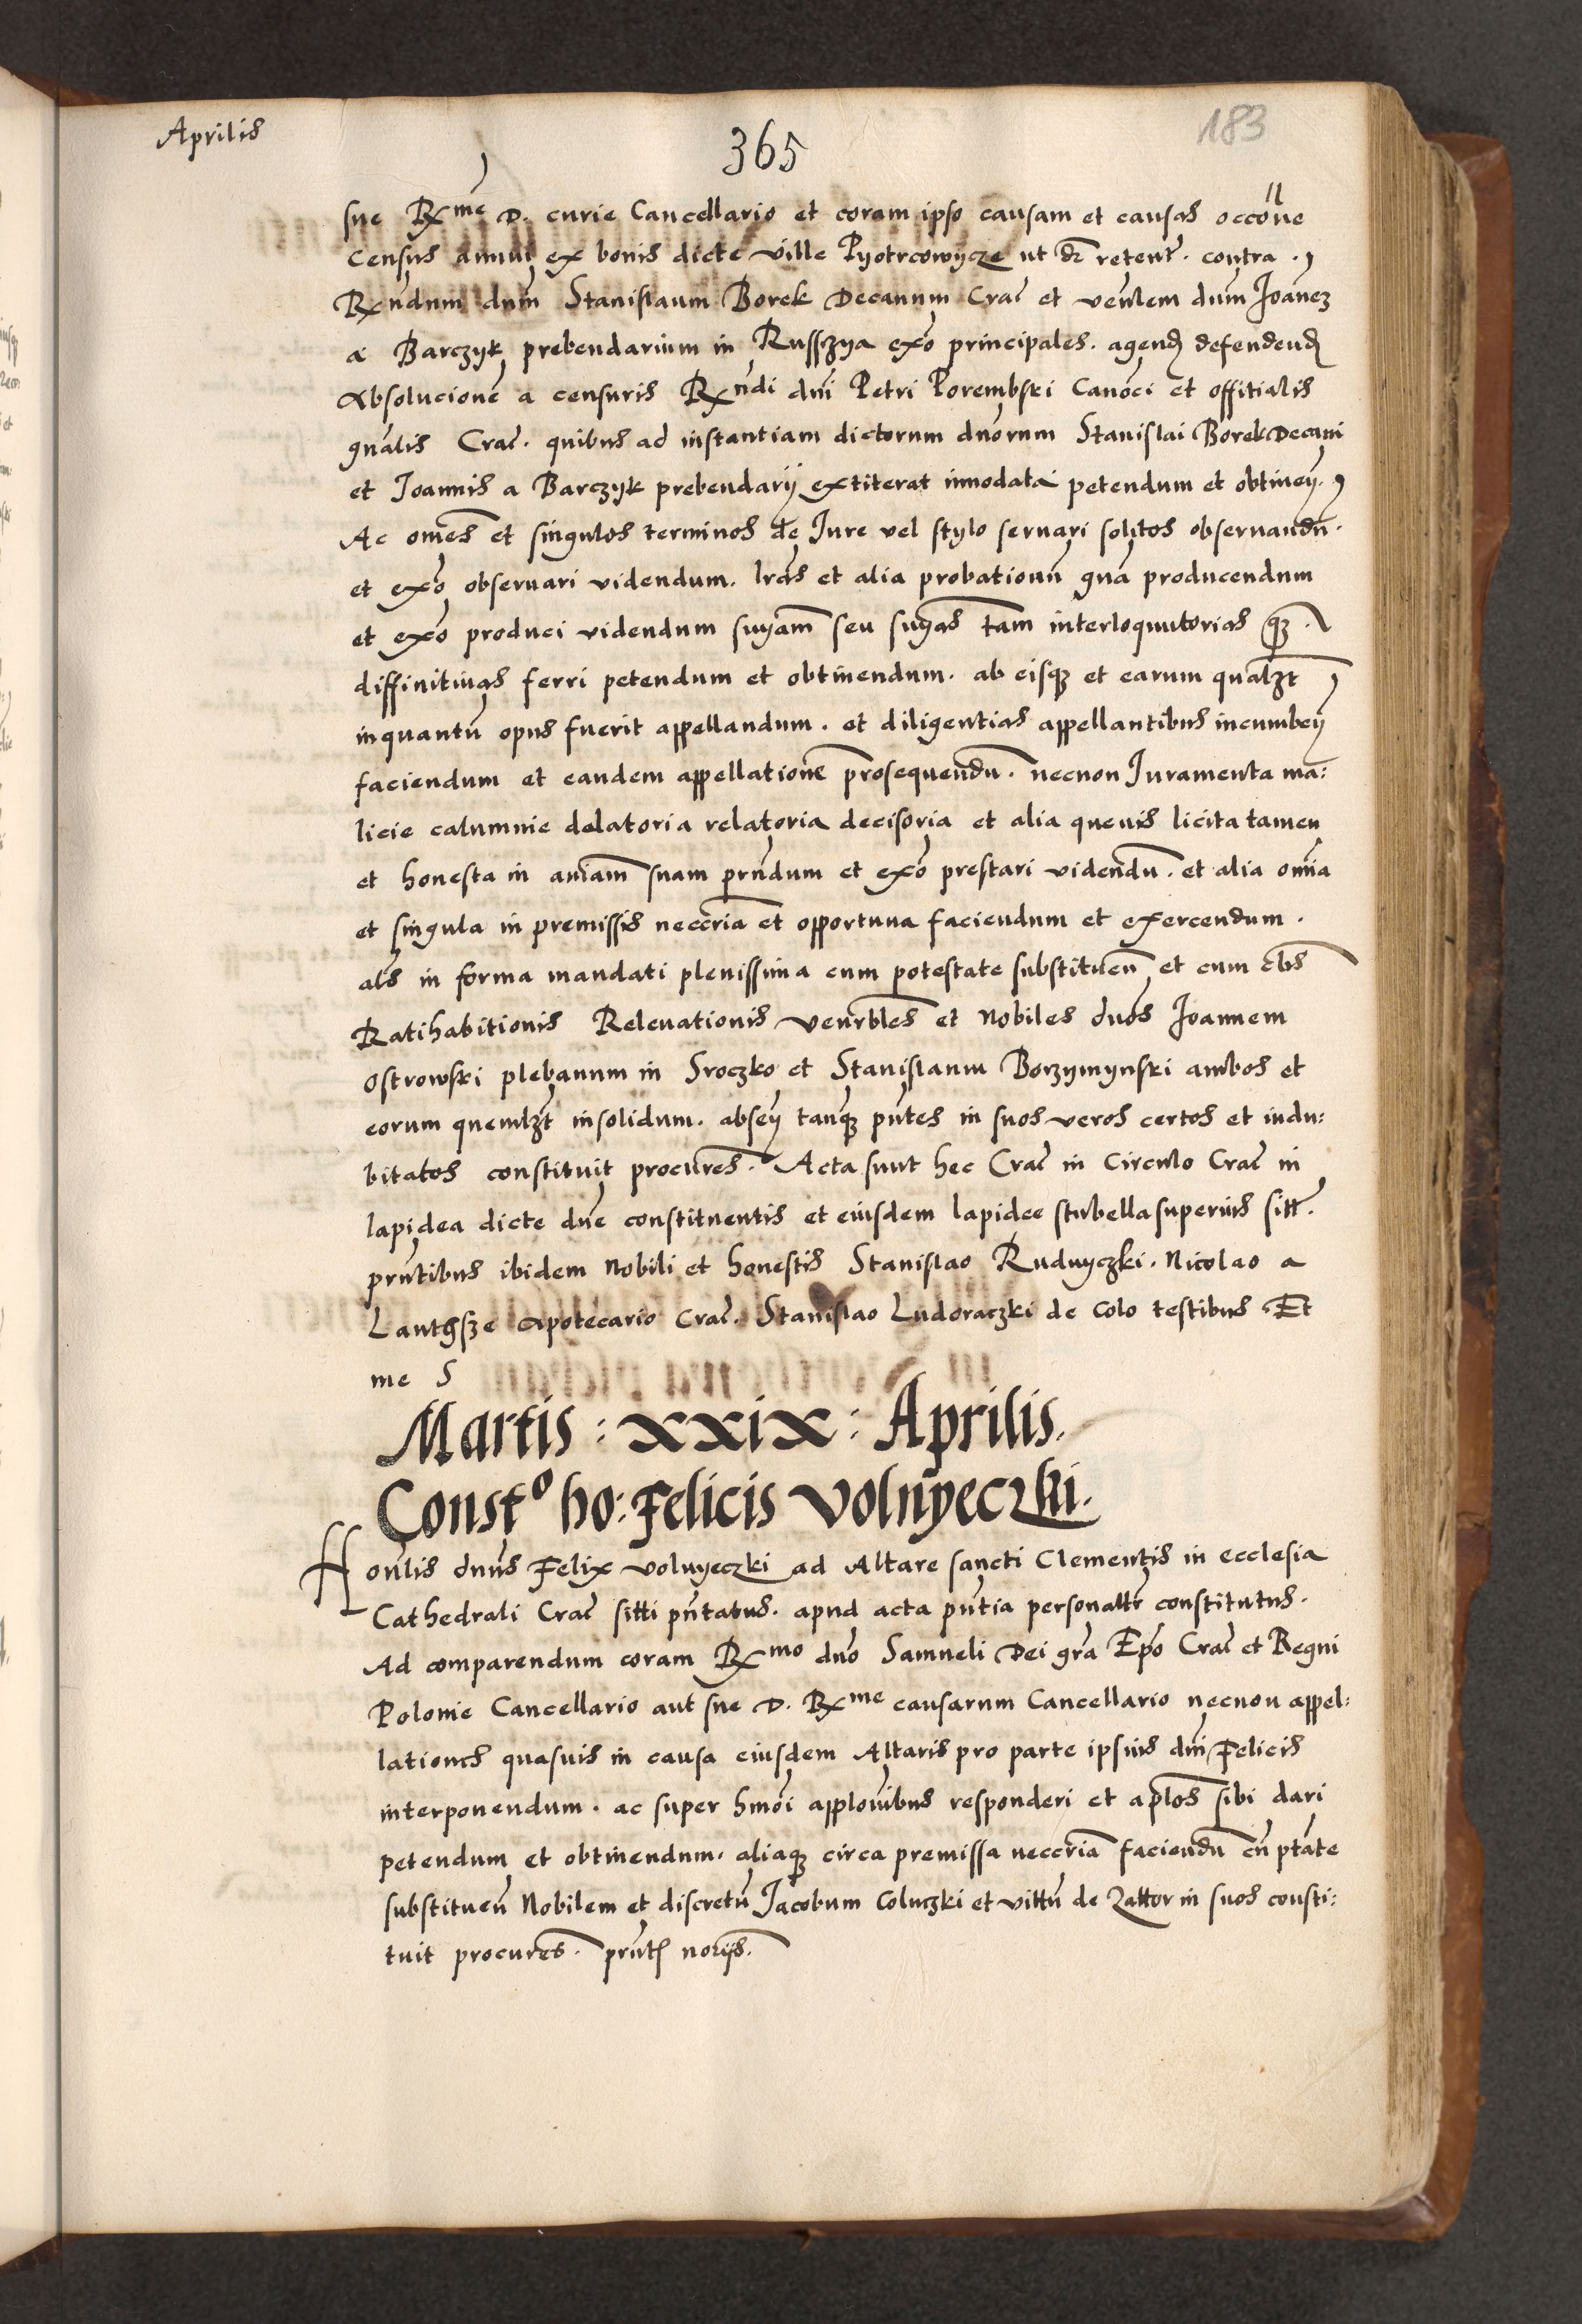 Aprilis
365
183
sue Rxme D. curie Cancellario et coram ipso causam et causas occone
census annui ex bonis dicte ville Pyotrcowycze ut dr retent. contra
Rxndum dnm Stanislaum Borek Decanum Crac et venlem dnm Joanez
a Barczyk prebendarium in Russzya exo principales. agend defendend
Absolucione a censuris Rxndi dni Petri Porembski Canoci et offitialis
gnalis Crac. quibus ad instantiam dictorum dnorum Stanislai Borek Decani
et Joannis a Barczyk prebendarij extiterat innodata petendum et obtinen.
Ac omes et singulos terminos de Jure vel stylo servari solitos observandu.
et exo observari videndum. lras et alia probationu gna producendum
et exo produci videndum suyam seu suyas tam interloquutorias qz.
diffinitivas ferri petendum et obtinendum. ab eisqz et earum qualzt
inquantu opus fuerit appellandum. et diligentias appellantibus incumben
faciendum et eandem appellatione prosequendu. necnon Juramenta ma:
licie calumnie delatoria relatoria decisoria et alia quevis licita tamen
et honesta in aniam suam prndum et exo prestari videndu. et alia omia
et singula in premissis neccria et opportuna faciendum et exercendum.
als in forma mandati plenissima cum potestate substituen et cum clis
Ratihabitionis Relevationis venrbles et Nobiles dnos Joannem
Ostrowski plebanum in Sroczko et Stanislaum Borzymynski ambos et
eorum quemlzt insolidum. absen tanqz pntes in suos veros certos et indu:
bitatos constituit procures. Acta sunt hec Crac in Circulo Crac in
lapidea dicte dne constituentis et eiusdem lapidee stubella superius sitt.
prntibus ibidem Nobili et honestis Stanislao Rudnyczki. Nicolao a
Lanthsze Apotecario Crac. Stanislao Ludoraczki de Colo testibus. Et
me S
Martis: xxix: Aprilis.
Consto ho: Felicis Volnyeczki.
Honlis dnus Felix Volnyeczki ad Altare sancti Clementis in ecclesia
Cathedrali Crac sitti pntatus. apud acta pntia personaltr constitutus.
Ad comparendum coram Rxmo dno Samueli Dei gra Epo Crac et Regni
Polonie Cancellario aut sue D. Rxme causarum Cancellario necnon appel:
lationes quasvis in causa eiusdem Altaris pro parte ipsius dni Felicis
interponendum. ac super hmoi applonibus responderi et aplos sibi dari
petendum et obtinendum. aliaqz circa premissa neccria faciendu cu ptate
substituen Nobilem et discretu Jacobum Coluczki et vittu de Zattor in suos consti:
tuit procures. prnt norijs.